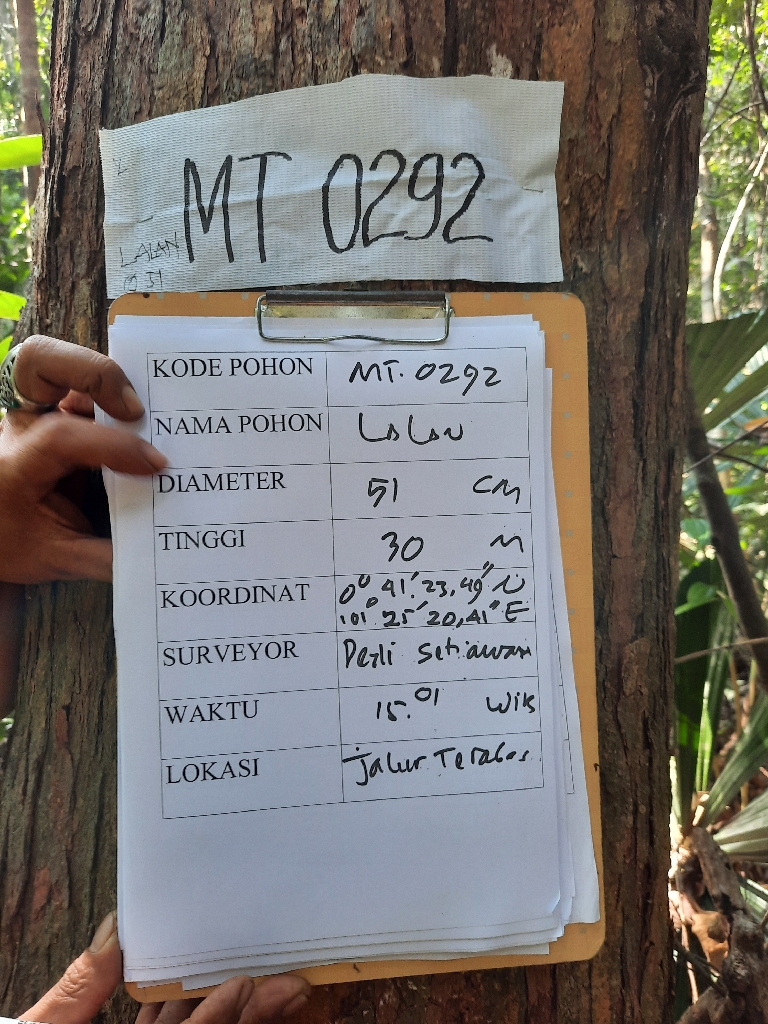 MT 0292
LALAN
KODE POHON MT. 0292
NAMA POHON LaLaN
DIAMETER 51 CM
TINGGI 30 M
KOORDINAT 0° 41' 23,49" N
101° 25' 20,41" E
SURVEYOR Setiawan
WAKTU 15.01 Wib
LOKASI Jalur Terabas